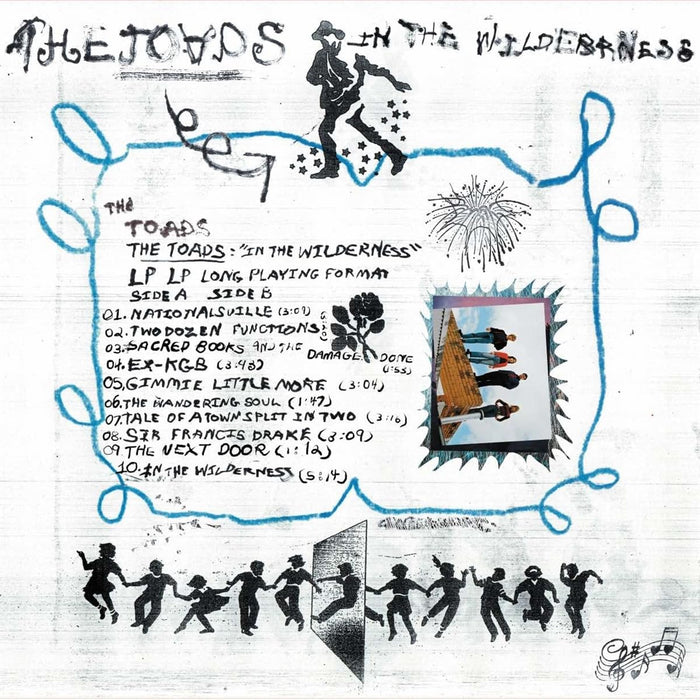 THE TOADS IN THE WILDERRNESS
THE
TOADS
THE TOADS: "IN THE WILDERNESS"
LP LP LONG PLAYING FORMAT
SIDE A SIDE B
01. NATIONALSVILLE
02. TWO DOZEN FUNCTIONS
03. SACRED BOOKS AND THE DAMAGE DONE
04. EX-KGB (3:48)
05. GIMMIE LITTLE MORE (3:04)
06. THE WANDERING SOUL (1:47)
07. TALE OF A TOWN SPLIT IN TWO (3:16)
08. SIR FRANCIS DRAKE (3:09)
09. THE NEXT DOOR (1:12)
10. IN THE WILDERNEST (5:14)